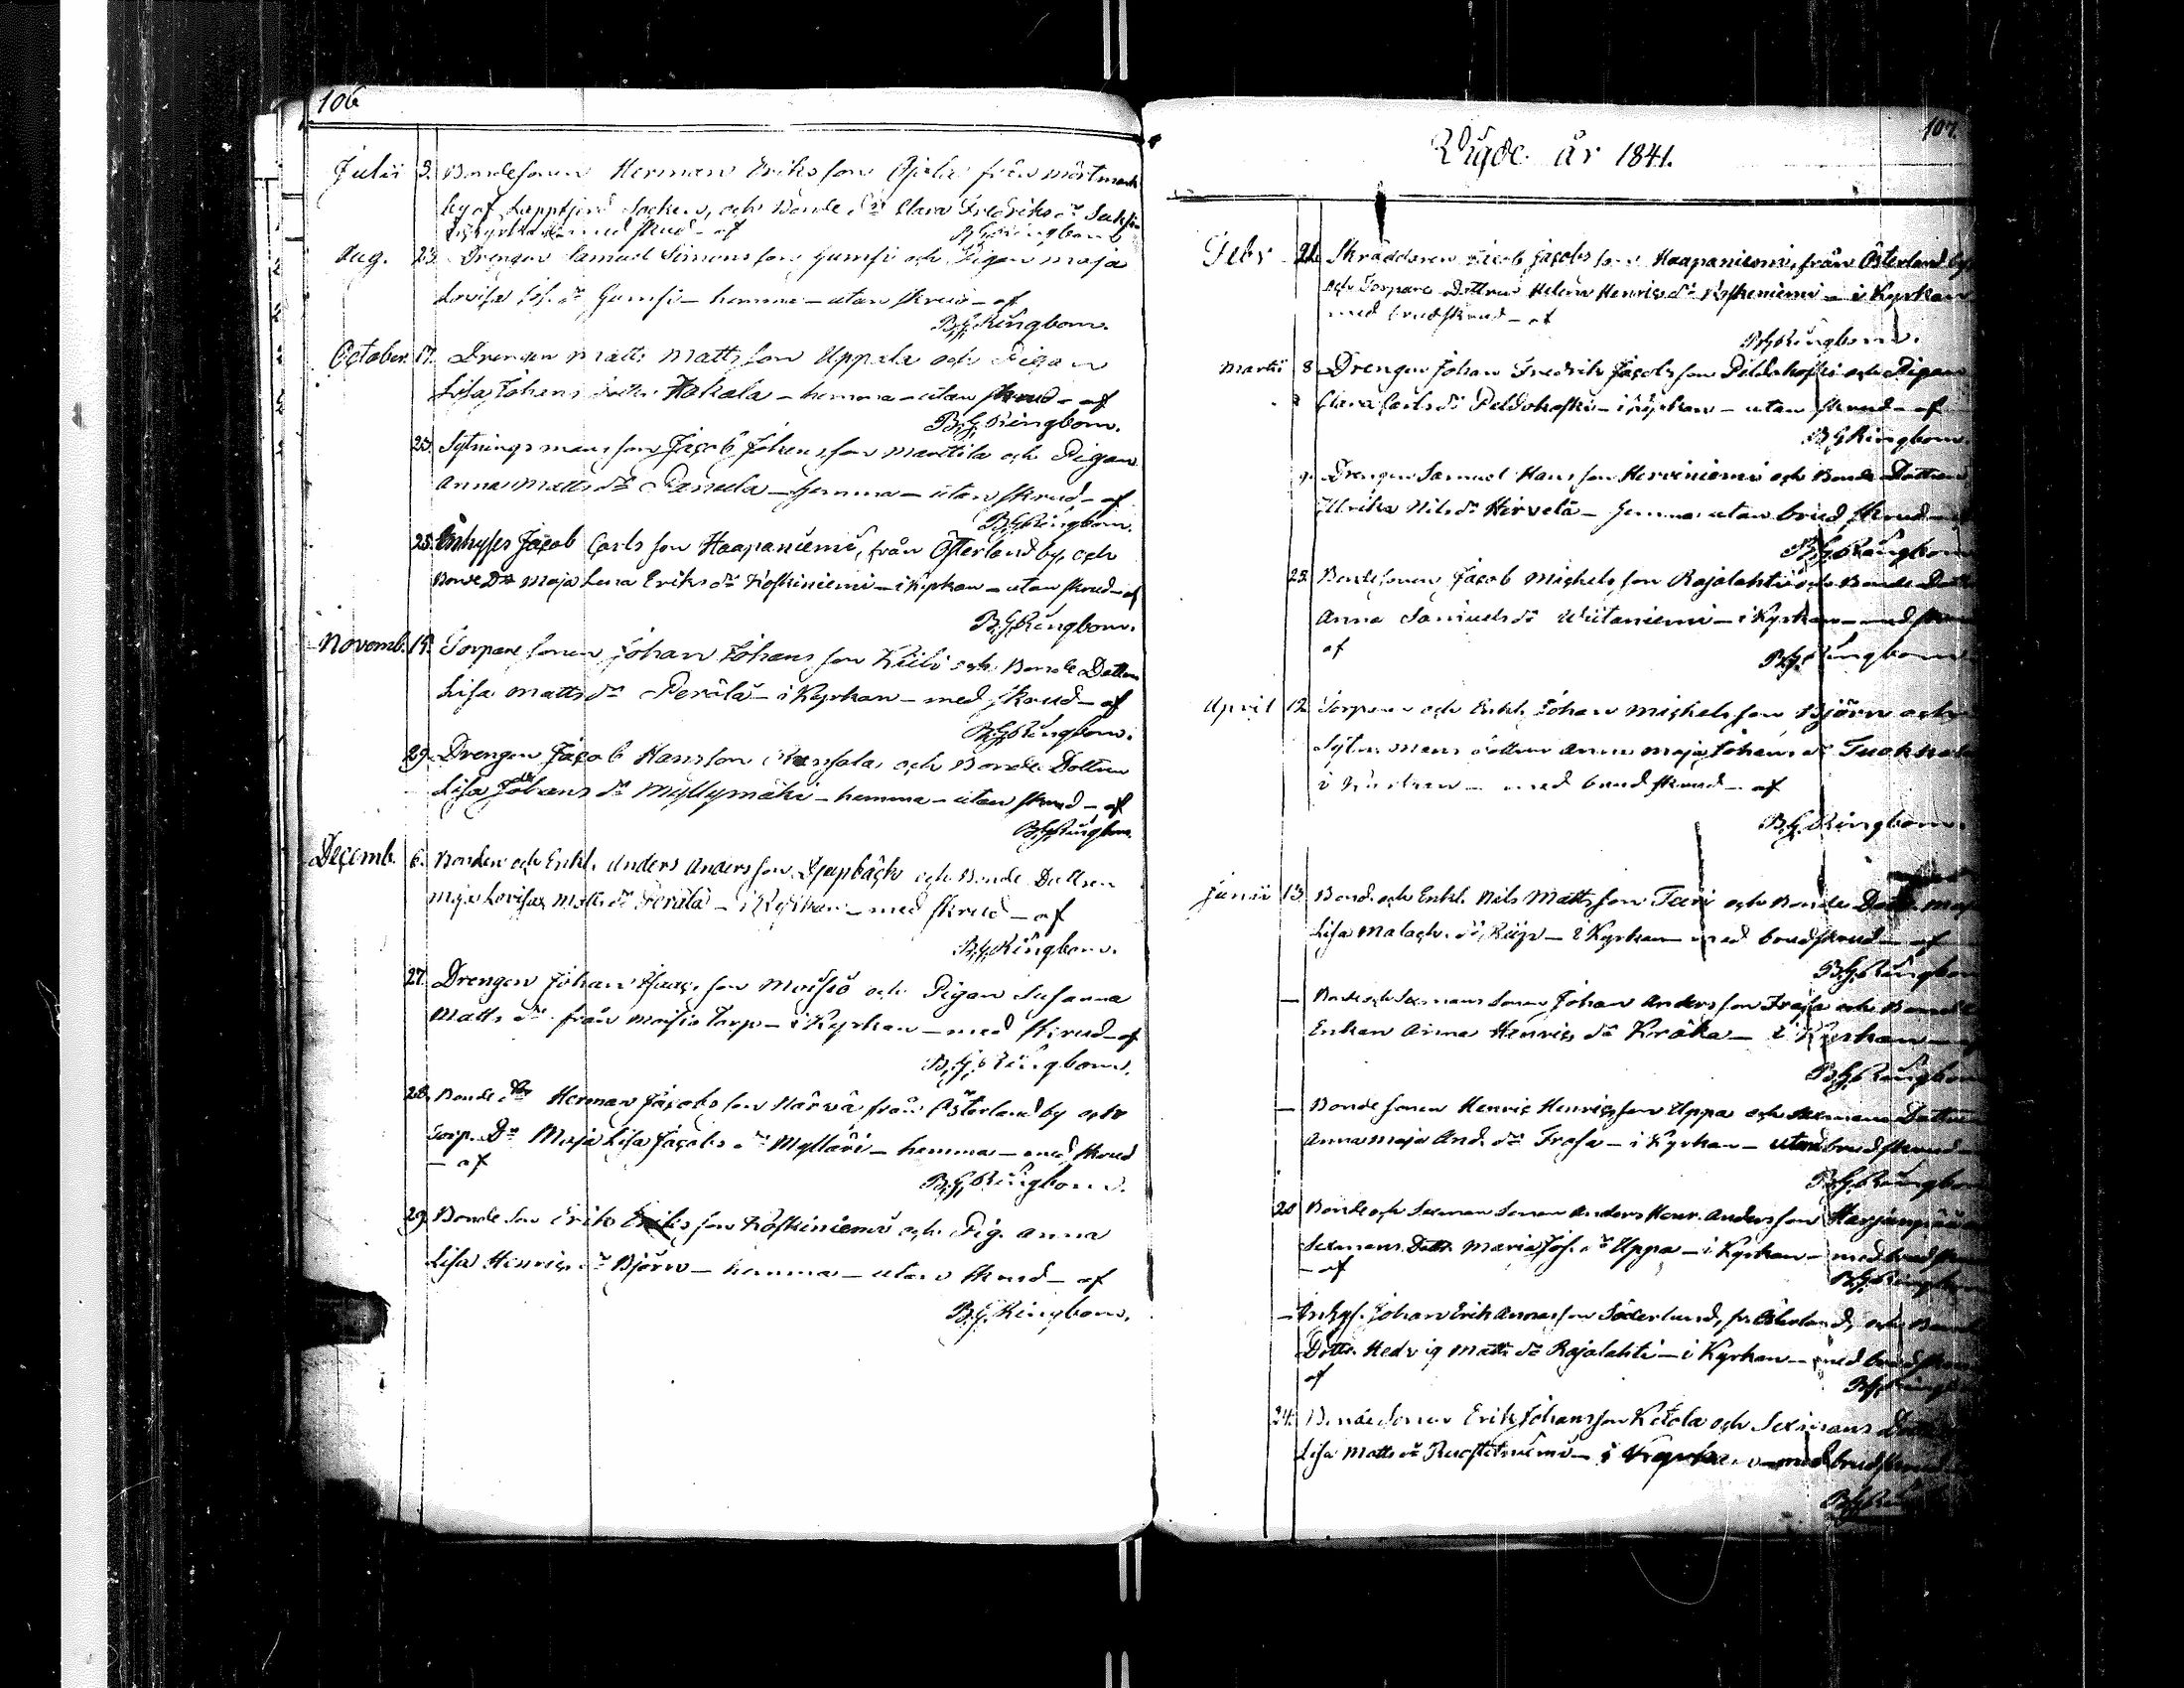 106
Julii 3. Bondesonen Herman Eriksson Ojala från Mörtmark
by af Lappfjerd Socken, och Bonde Dr Clara Fredriks dr
i Kyrkan med skrud - af B.G. Ringbom
Aug. 23. Drengen Samuel Simonsson Gumsi och Pigan Maja
Lovisa Jos. dr Gumsi - hemma - utan skrud - af
B.G. Ringbom.
October 17. Drengen Matts Mattsson Uppala och Pigan
Lisa Johans dotter Hakala - hemma - utan skrud - af
B.G. Ringbom.
23. Sytningsmansson Jacob Johansson Marttila och Pigan
Anna Matts dr Panula - hemma - utan skrud - af
B.G. Ringbom.
25. Inhyses Jacob Carlsson Haapaniemi, från Österland by, och
Bonde Dr Maja Lena Eriks dr Koskiniemi - i Kyrkan - utan skrud - af
B.G. Ringbom.
Novemb. 15. Torparesonen Johan Johansson Kiili och Bonde Dottren
Lisa Matts dr Perälä - i Kyrkan - med skrud - af
B.G. Ringbom.
29. Drengen Jacob Hansson och Bonde Dottren
Lisa Johans dr Myllymäki - hemma - utan skrud - af
B.G. Ringbom.
Decemb. 6. Bonden och Enkl. Anders Andersson Djupbäck och Bonde Dottren
Maja Lovisa Matts dr Perälä - i Kyrkan - med skrud - af
B.G. Ringbom.
27. Drengen Johan Isacsson Moisio och Pigan Susanna
Matts dr från Moisio Torp - i Kyrkan - med skrud - af
B.G. Ringbom.
28. Bonde Herman Jacobsson Närvä från Österland by och
Torp. Dr Maja Lisa Jacobs dr Mylläri - hemma - med skrud
- af
B.G. Ringbom.
29. Bonde Son Erik Eriksson Koskiniemi och Pig. Anna
Lisa Henrics dr Björn - hemma - utan skrud - af
B.G. Ringbom.
107.
Vigde år 1841.
Febr 21. Skräddaren Jacob Jacobsson Haapaniemi, från Österland by
och Torpare Dottren Helena Henrics dr Koskeniemi - i Kyrkan
med brudskrud - af
B.G. Ringbom.
Martii 8. Drengen Johan Fredrik Jacobsson Peldokoski och Pigan
Clara Carls dr Peldokoski - i Kyrkan - utan skrud - af
B.G. Ringbom.
9. Drengen Samuel Hansson Herviniemi och Bonde Dottren
Ulrika Nils dr Hirvelä - hemma utan brud skrud - af
B.G. Ringbom
25. Bondesonen Jacob Michelsson Rajalahti och Bonde Dott
Anna Samuels dr Wiitaniemi - i Kyrkan - med skrud
af
B.G. Ringbom.
April 12. Torparen och Enkl. Johan Michelsson Björn och
Sytn. mans dottren Anna Maja Johans dr
i Kyrkan - med brudskrud - af
B.G. Ringbom.
Junii 13. Bond. och Enkl. Nils Mattsson Turi och Bonde Dott. Maja
Lisa Malach. dr - i Kyrkan - med brudskrud - af
B.G. Ringbom
- Bonde och Sexmans Sonen Johan Andersson Frasa och Bonde
Enkan Anna Henrics dr Kråka - i Kyrkan -
B.G. Ringbom
- Bonde sonen Henric Henricsson Uppa och Sexmans Dottren
Anna Maja And. dr Frasa - i Kyrkan - utan brudskrud -
B.G. Ringbom
20 Bonde och Sexman Sonen Anders Henr. Andersson Harjunpää
Sexmans Dott. Maria Jos. dr Uppa - i Kyrkan - med brudskrud
- af
B.G. Ringbom
- Inhys. Johan Erik Annasson Söderlund, fr. Österland, och Bonde
Dottr. Hedvig Matts dr Rajalahti - i Kyrkan - med brudskrud
af
B.G. Ringbom
24. Bonde Sonen Erik Johansson Ketola och Sexmans
Lisa Matts dr - i Kyrkan - med brudskrud
B.G.